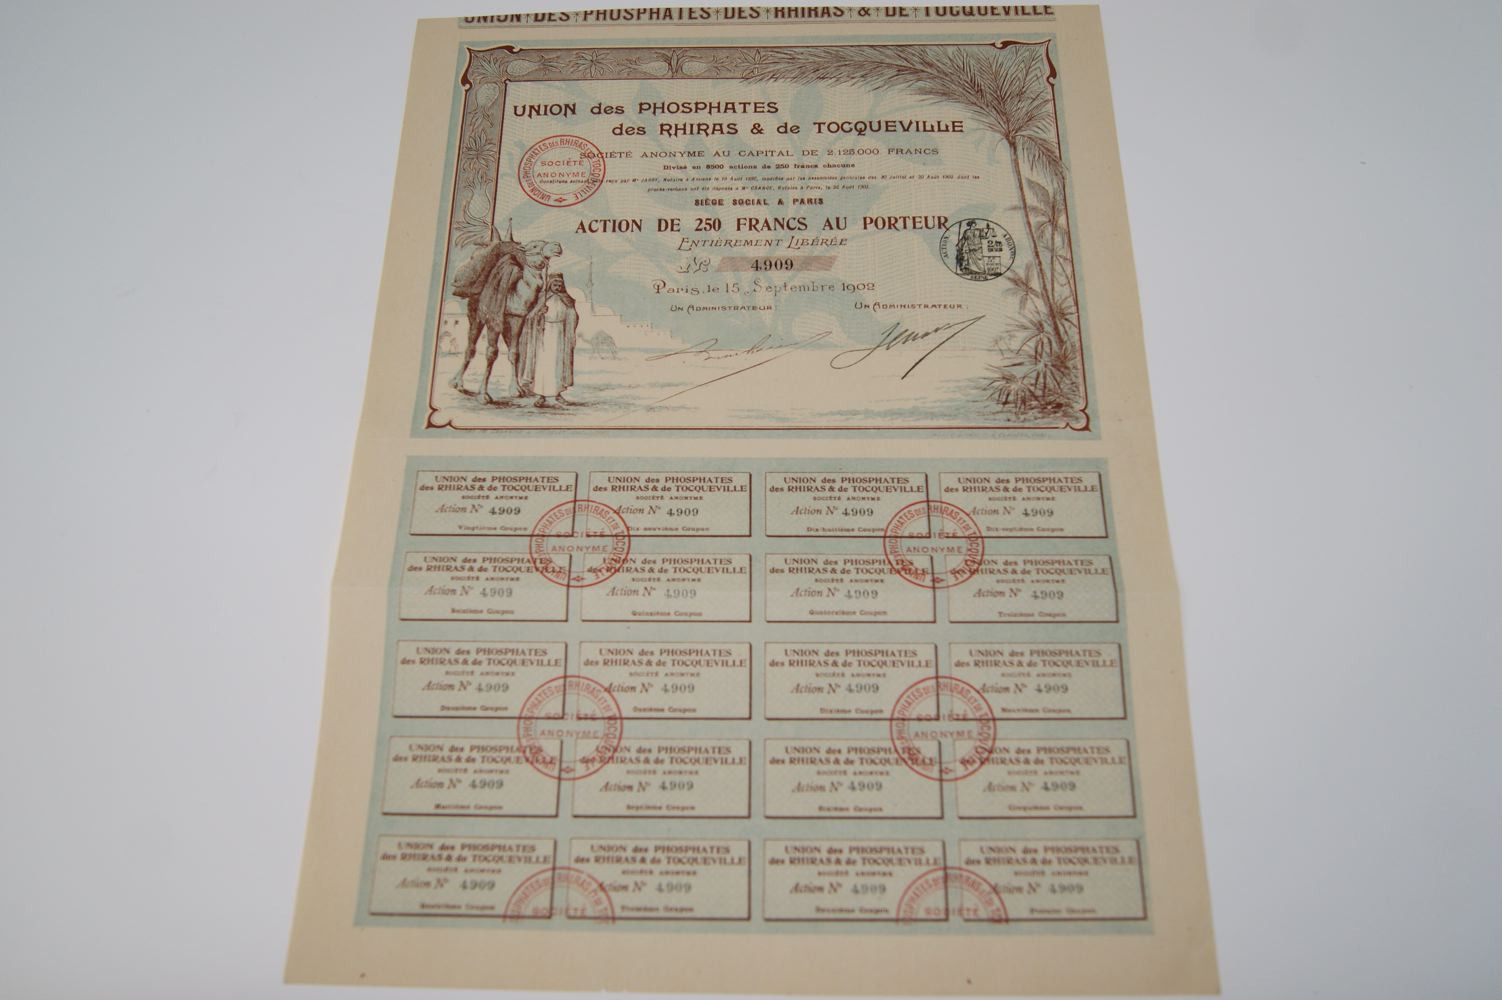 UNION DES PHOSPHATES DES RHIRAS & DE TOCQUEVILLE
UNION des PHOSPHATES
des RHIRAS & de TOCQUEVILLE
SOCIÉTÉ ANONYME AU CAPITAL DE 2.125.000 FRANCS
Divisé en 8500 actions de 250 francs chacune
SIÈGE SOCIAL À PARIS
ACTION DE 250 FRANCS AU PORTEUR
ENTIÈREMENT LIBÉRÉE
Nº 4.909
Paris, le 15 Septembre 1902
UN ADMINISTRATEUR: UN ADMINISTRATEUR:
UNION DES PHOSPHATES DES RHIRAS ET DE TOCQUEVILLE
SOCIÉTÉ
ANONYME
UNION des PHOSPHATES
des RHIRAS & de TOCQUEVILLE
SOCIÉTÉ ANONYME
Action Nº 4.909
Vingtième Coupon
UNION des PHOSPHATES
des RHIRAS & de TOCQUEVILLE
SOCIÉTÉ ANONYME
Action Nº 4.909
Dix-neuvième Coupon
UNION des PHOSPHATES
des RHIRAS & de TOCQUEVILLE
SOCIÉTÉ ANONYME
Action Nº 4.909
Dix-huitième Coupon
UNION des PHOSPHATES
des RHIRAS & de TOCQUEVILLE
SOCIÉTÉ ANONYME
Action Nº 4.909
Dix-septième Coupon
UNION des PHOSPHATES
des RHIRAS & de TOCQUEVILLE
SOCIÉTÉ ANONYME
Action Nº 4.909
Seizième Coupon
UNION des PHOSPHATES
des RHIRAS & de TOCQUEVILLE
SOCIÉTÉ ANONYME
Action Nº 4.909
Quinzième Coupon
UNION des PHOSPHATES
des RHIRAS & de TOCQUEVILLE
SOCIÉTÉ ANONYME
Action Nº 4.909
Quatorzième Coupon
UNION des PHOSPHATES
des RHIRAS & de TOCQUEVILLE
SOCIÉTÉ ANONYME
Action Nº 4.909
Treizième Coupon
UNION des PHOSPHATES
des RHIRAS & de TOCQUEVILLE
SOCIÉTÉ ANONYME
Action Nº 4.909
Douzième Coupon
UNION des PHOSPHATES
des RHIRAS & de TOCQUEVILLE
SOCIÉTÉ ANONYME
Action Nº 4.909
Onzième Coupon
UNION des PHOSPHATES
des RHIRAS & de TOCQUEVILLE
SOCIÉTÉ ANONYME
Action Nº 4.909
Dixième Coupon
UNION des PHOSPHATES
des RHIRAS & de TOCQUEVILLE
SOCIÉTÉ ANONYME
Action Nº 4.909
Neuvième Coupon
UNION des PHOSPHATES
des RHIRAS & de TOCQUEVILLE
SOCIÉTÉ ANONYME
Action Nº 4.909
Huitième Coupon
UNION des PHOSPHATES
des RHIRAS & de TOCQUEVILLE
SOCIÉTÉ ANONYME
Action Nº 4.909
Septième Coupon
UNION des PHOSPHATES
des RHIRAS & de TOCQUEVILLE
SOCIÉTÉ ANONYME
Action Nº 4.909
Sixième Coupon
UNION des PHOSPHATES
des RHIRAS & de TOCQUEVILLE
SOCIÉTÉ ANONYME
Action Nº 4.909
Cinquième Coupon
UNION des PHOSPHATES
des RHIRAS & de TOCQUEVILLE
SOCIÉTÉ ANONYME
Action Nº 4.909
Quatrième Coupon
UNION des PHOSPHATES
des RHIRAS & de TOCQUEVILLE
SOCIÉTÉ ANONYME
Action Nº 4.909
Troisième Coupon
UNION des PHOSPHATES
des RHIRAS & de TOCQUEVILLE
SOCIÉTÉ ANONYME
Action Nº 4.909
Deuxième Coupon
UNION des PHOSPHATES
des RHIRAS & de TOCQUEVILLE
SOCIÉTÉ ANONYME
Action Nº 4.909
Premier Coupon